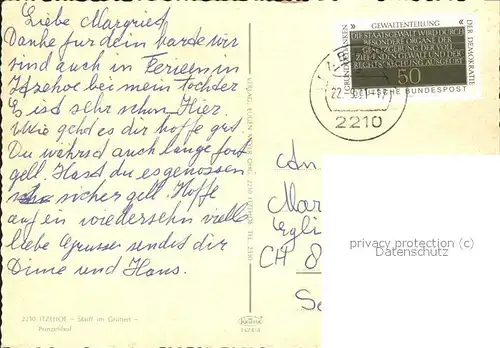 Liebe Margried
Danke für dein Karde wir
sind auch in Ferieen in
Itzehoe bei mein tochter
Es ist sehr schön Hier.
Wie gehd es dir hoffe gut.
Du wahrsd auch lange fort
gell. Hasd du es genossen
sicher gell. Hoffe
auf ein wiedersehn viele
liebe Grusse sendet dir
und Hans.
2210 ITZEHOE – Stadt im Grünen –
Prinzeßhof
VERLAG
2210 ITZEHOE TEL.
GRUNDGEDANKEN DER DEMOKRATIE
» GEWALTENTEILUNG «
DIE STAATSGEWALT WIRD DURCH
BESONDERE ORGANE DER
GESETZGEBUNG DER VOLL-
ZIEHENDEN GEWALT UND DER
RECHTSPRECHUNG AUSGEÜBT
50
DEUTSCHE BUNDESPOST
2210
An
Mar
Egli
CH 8
privacy protection (c)
Datenschutz